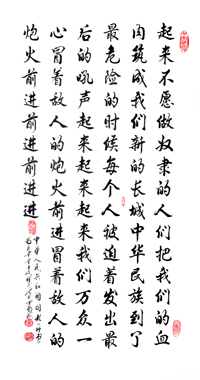 起来不愿做奴隶的人们把我们的血
肉筑成我们新的长城中华民族到了
最危险的时候每个人被迫着发出最
后的吼声起来起来起来我们万众一
心冒着敌人的炮火前进冒着敌人的
炮火前进前进前进进
中华人民共和国国歌